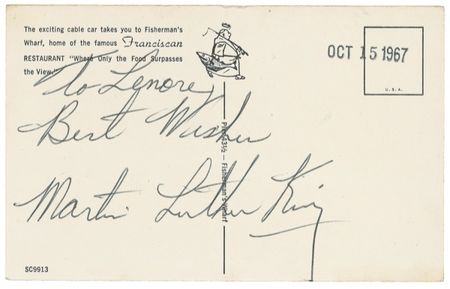 The exciting cable car takes you to Fisherman's
Wharf, home of the famous Franciscan
RESTAURANT "Where Only the Food Surpasses
the View."
OCT 15 1967
U.S.A.
To Lenore
Best Wishes
Martin Luther King
Pier 43½ — Fisherman's Wharf
SC9913